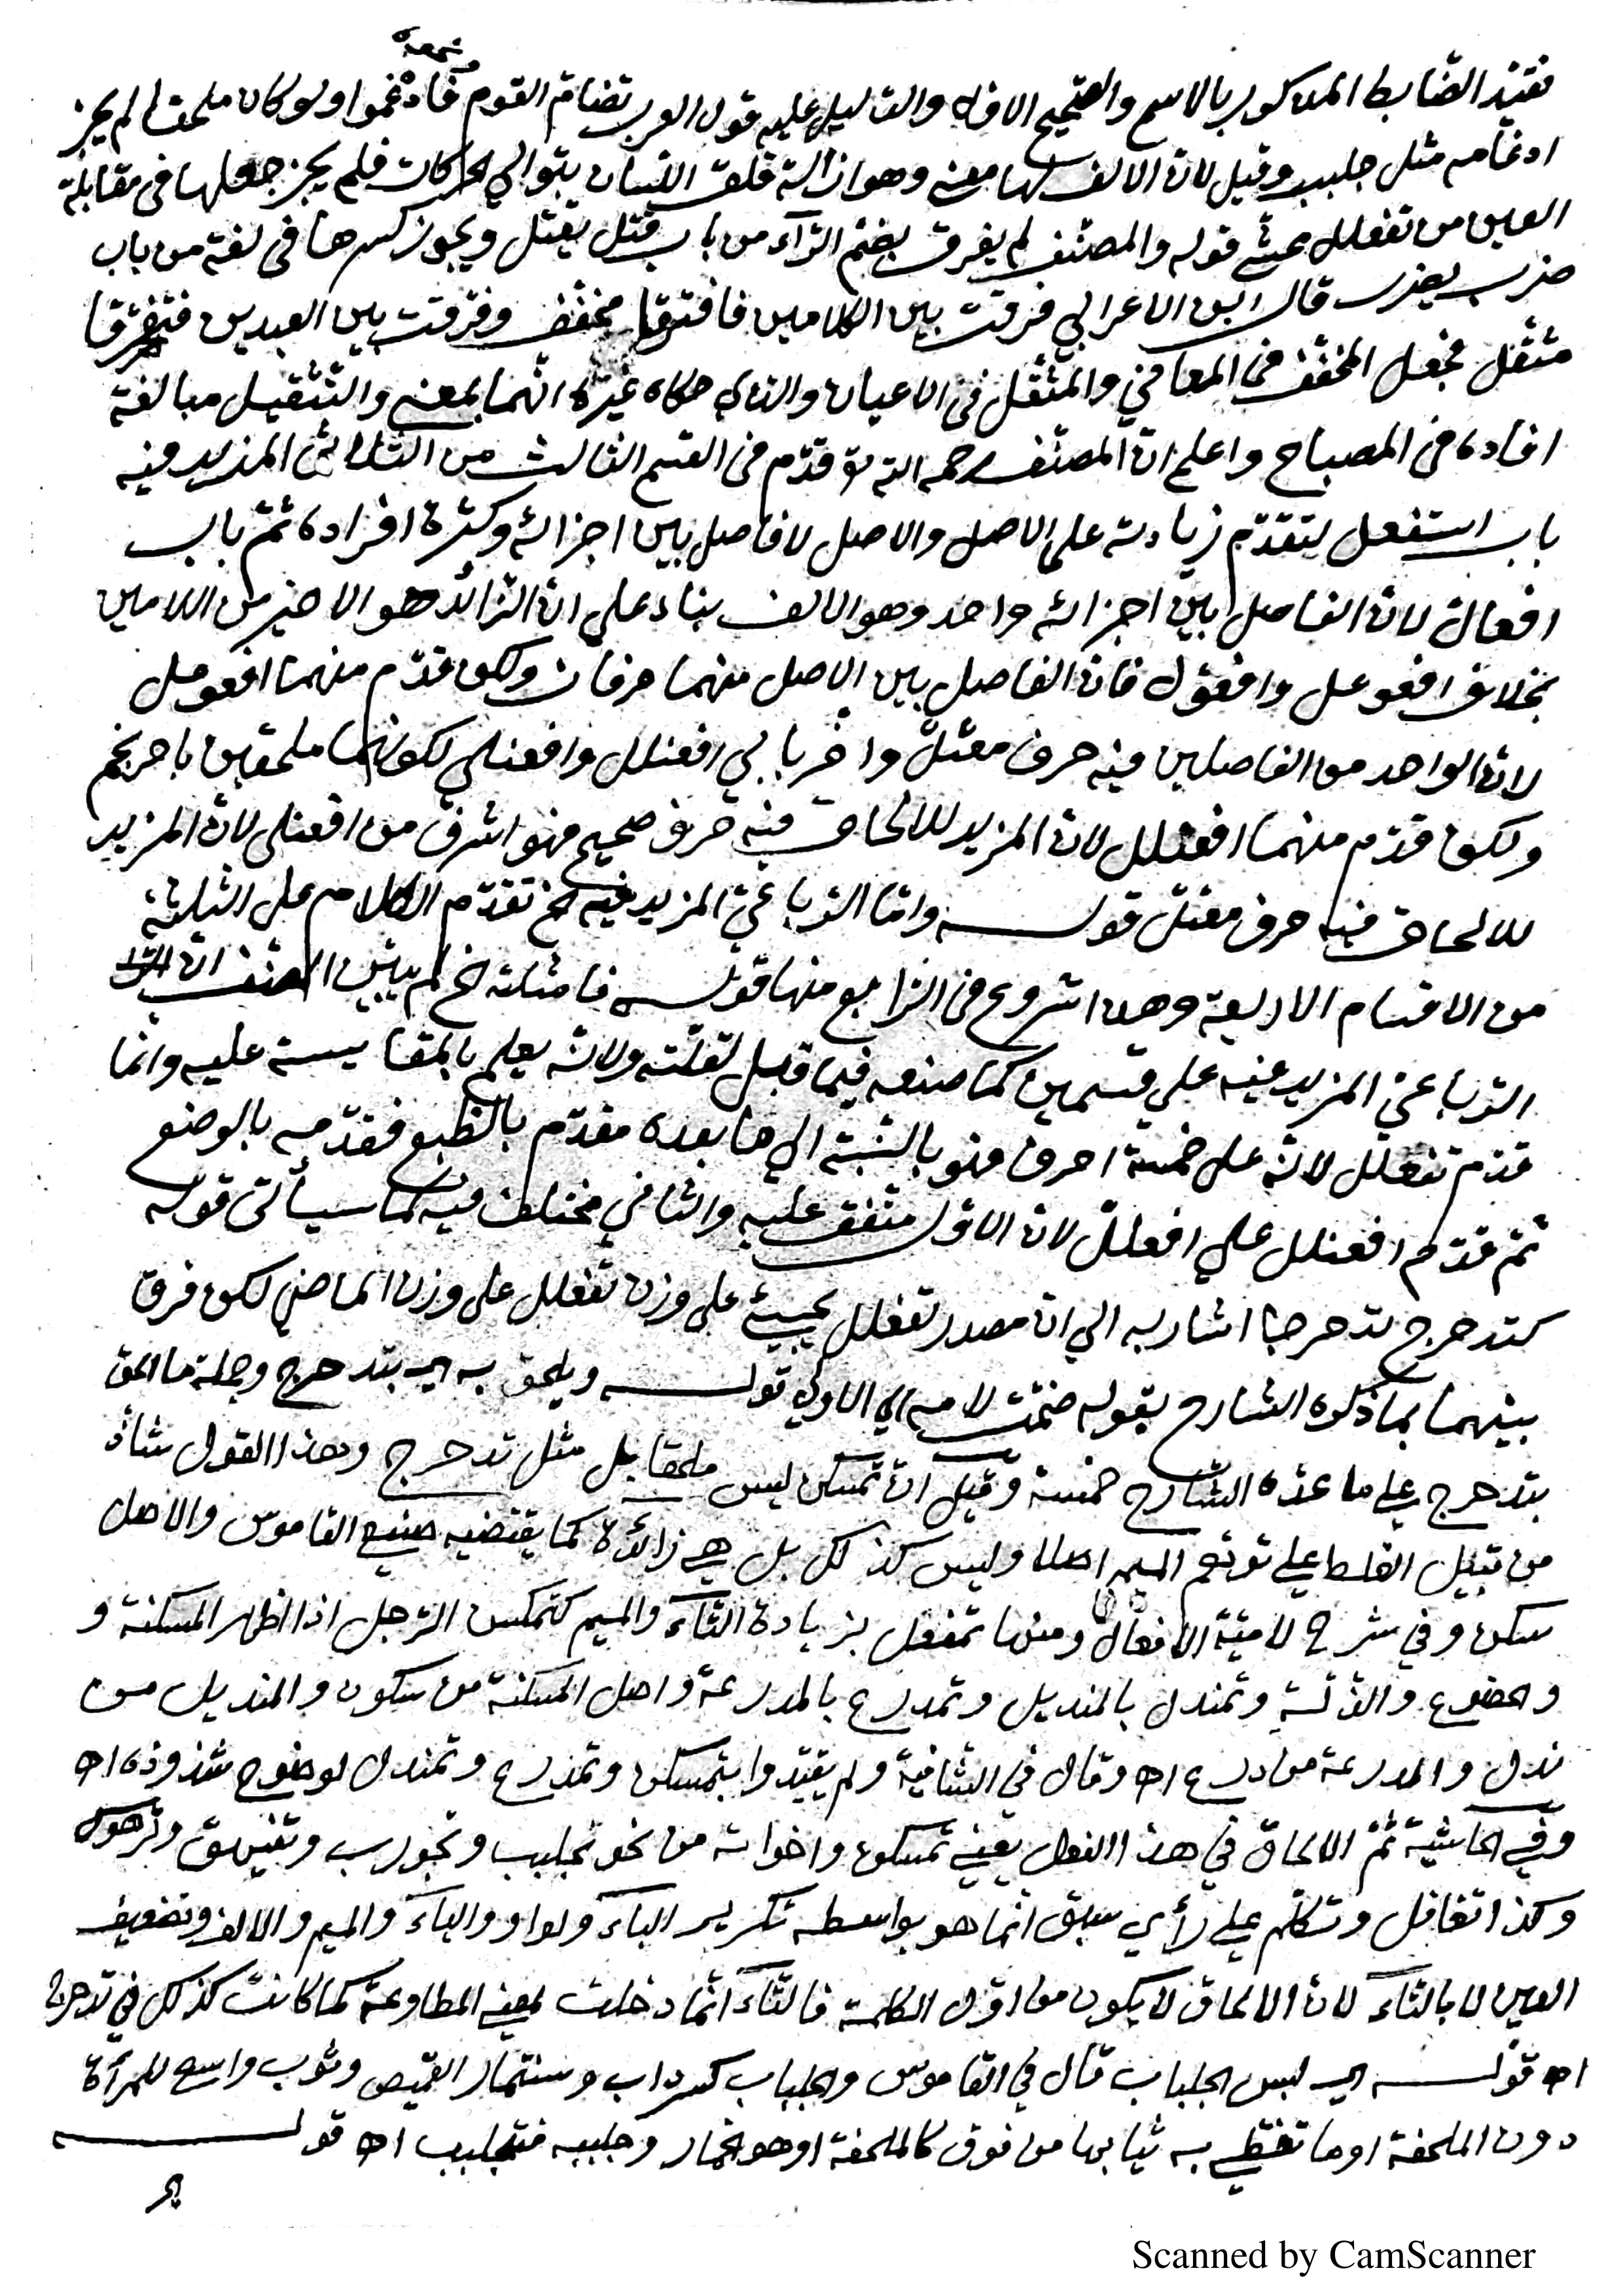 فقيّد الضّابط المذكور بالاسم والصّحيح الاوّل والدّليل عليه قول العرب تضامّ القوم فادغموا ولو كان ملحقا لم يجز
ادغامه مثل جلبب وقيل لانّ الالف لها معنى وهو ازالة قلق اللسان بتوالي الحركات فلم يجز جعلها فى مقابلة
العين من تفعلل محشّي قوله والمصنّف لم يفرق بضمّ الرّآء من باب قتل يقتل ويجوز كسرها فى لغة من باب
ضرب يضرب قال ابن الاعرابي فرقت بين الكلامين فافترقا مخفّف وفرّقت بين العبدين فتفرّقا
مثقّل فجعل المخفّف فى المعاني والمثقّل فى الاعيان والذي حكاه غيره انّهما بمعنى والتّثقيل مبالغة
افاده فى المصباح واعلم انّ المصنّف رحمه الله تع قدّم فى القسم الثالث من الثلاثيّ المزيد فيه
باب استفعل لتقدّم زيادته على الاصل والاصل لا فاصل بين اجزائه وكثرة افراده ثمّ باب
افعالّ لانّ الفاصل بين اجزائه واحد وهو الالف بناء على انّ الزّائد هو الاخير من اللامين
بخلاف افعوعل وافعوّل فانّ الفاصل بين الاصل منهما حرفان ولكن قدّم منهما افعوعل
لانّ الواحد من الفاصلين فيه حرف معتلّ واخّر بابي افعنلل وافعنلي لكونهما ملحقين باحرنجم
ولكن قدّم منهما افعنلل لانّ المزيد للالحاق فيه حرف صحيح فهو اشرف من افعنلى لانّ المزيد
للالحاق فيه حرف معتلّ قوله وامّا الرّباعيّ المزيد فيه الخ تقدّم الكلام على الثلثة
من الاقسام الاربعة وهذا شروع فى الرّابع منها قوله فامثلته الخ لم يبيّن المصنف انّ
الرّباعيّ المزيد فيه على قسمين كما صنعه فيما قبل لقلّته ولانّه يعلم بالمقايسة عليه وانّما
قدّم تفعلل لانّه على خمسة احرف فهو بالنّسبة الي ما بعده مقدّم بالطّبع فقدّمه بالوضع
ثمّ قدّم افعنلل علي افعللّ لانّ الاوّل متّفق عليه والثاني مختلف فيه كما سيأتي قوله
كتدحرج تدحرجا اشار به الي انّ مصدر تفعلل يجيئ على وزن تفعلل على وزن الماضي لكن فرق
بينهما بما ذكره الشارح بقوله ضمّت لامه اي الاولي قوله ويلحق به اي بتدحرج وجملة ما الحق
بتدحرج علي ما عدّه الشارح خمسة وقيل انّ تمسكن ليس ملحقا بل مثل تدحرج وهذا القول شاذّ
من قبيل الغلط علي توهّم الميم اصلا وليس كذلك بل هي زائدة كما يقتضيه صنيع القاموس والاصل
سكن وفي شرح لاميّة الافعال ومنها تمفعل بزيادة التّاء والميم كتمكسن الرّجل اذا اظهر المسكنة و
والخضوع والذّلّة وتمندل بالمنديل وتمدرع بالمدرعة واصل المسكنة من سكون والمنديل من
ندل والمدرعة من درع اه وقال في الشّافية ولم يقيّدوا بتمسكن وتمدرع وتمندل لوضوح شذوذه اه
وفي الحاشية ثمّ الالحاق في هذا الفعل يعني تمسكن واخواته من نحو تجلبب وتجورب وتفيهق وترهوك
وكذا تغافل وتكلّم علي رأي سبق انّما هو بواسطه تكرير الباء ولواو والياء والميم والالف وتضعيف
العين لا بالتّاء لانّ الالحاق لا يكون من اوّل الكلمة فالتّاء انّما دخلت لمعنى المطاوعة كما كانت كذلك في تدحرج
اه قوله اي لبس الجلباب قال في القاموس والجلباب كسرداب وسنمّار القميص وثوب واسع للمرأة
دون الملحفة او ما تغطّي به ثيابها من فوق كالملحفة او هو الخمار وجلببه فتجلبب اه قوله
Scanned by CamScanner